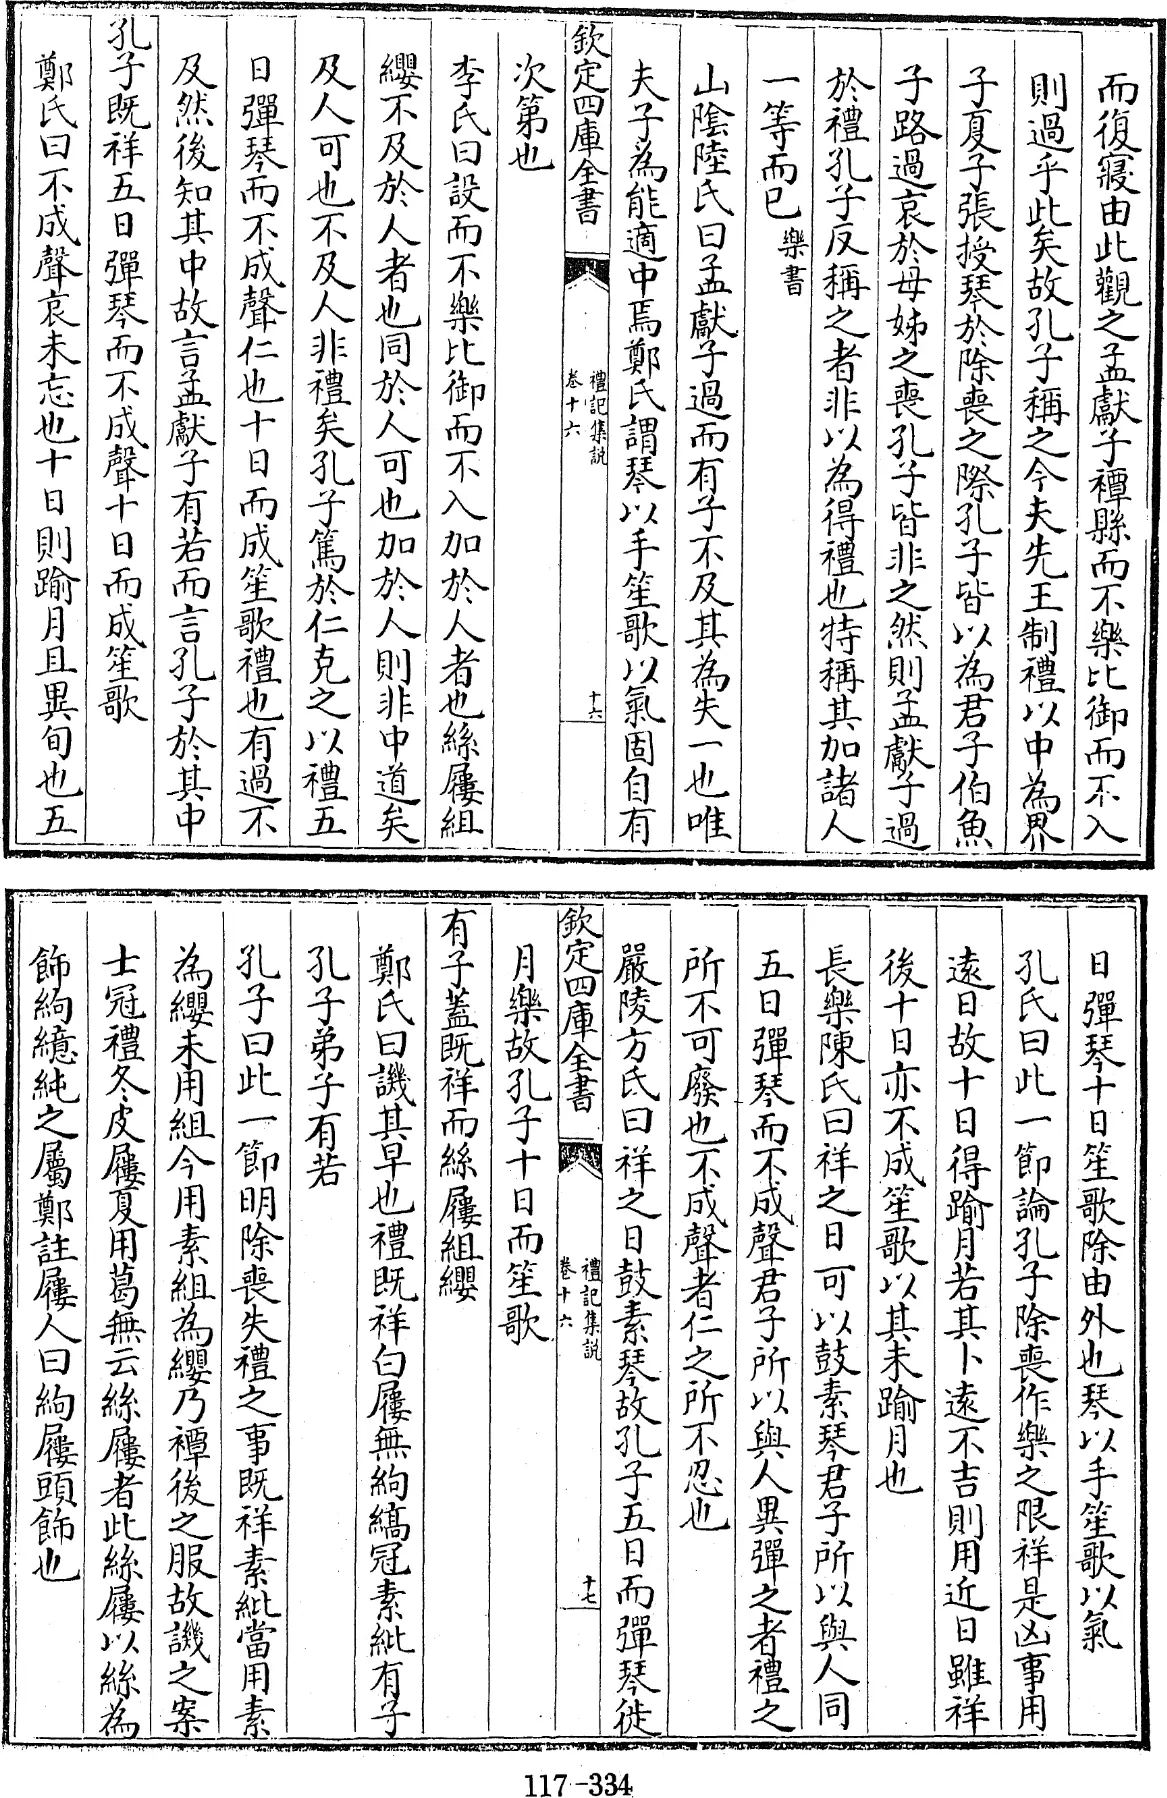 而復寢由此觀之孟獻子禫縣而不樂比御而不入
則過乎此矣故孔子稱之今夫先王制禮以中為界
子夏子張授琴於除喪之際孔子皆以為君子伯魚
子路過哀於母姊之喪孔子皆非之然則孟獻子過
於禮孔子反稱之者非以為得禮也特稱其加諸人
一等而已樂書
山陰陸氏曰孟獻子過而有子不及其為失一也唯
夫子為能適中焉鄭氏謂琴以手笙歌以氣固自有
欽定四庫全書
禮記集說
卷十六
十六
次第也
李氏曰設而不樂比御而不入加於人者也絲屨組
纓不及於人者也同於人可也加於人則非中道矣
及人可也不及人非禮矣孔子篤於仁克之以禮五
日彈琴而不成聲仁也十日而成笙歌禮也有過不
及然後知其中故言孟獻子有若而言孔子於其中
孔子既祥五日彈琴而不成聲十日而成笙歌
鄭氏曰不成聲哀未忘也十日則踰月且異旬也五
日彈琴十日笙歌除由外也琴以手笙歌以氣
孔氏曰此一節論孔子除喪作樂之限祥是凶事用
遠日故十日得踰月若其卜遠不吉則用近日雖祥
後十日亦不成笙歌以其未踰月也
長樂陳氏曰祥之日可以鼓素琴君子所以與人同
五日彈琴而不成聲君子所以與人異彈之者禮之
所不可廢也不成聲者仁之所不忍也
嚴陵方氏曰祥之日鼓素琴故孔子五日而彈琴徙
欽定四庫全書
禮記集說
卷十六
十七
月樂故孔子十日而笙歌
有子蓋既祥而絲屨組纓
鄭氏曰譏其早也禮既祥白屨無絇縞冠素紕有子
孔子弟子有若
孔子曰此一節明除喪失禮之事既祥素紕當用素
為纓未用組今用素組為纓乃禫後之服故譏之案
士冠禮冬皮屨夏用葛無云絲屨者此絲屨以絲為
飾絇繶純之屬鄭註屨人曰絇屨頭飾也
117-334